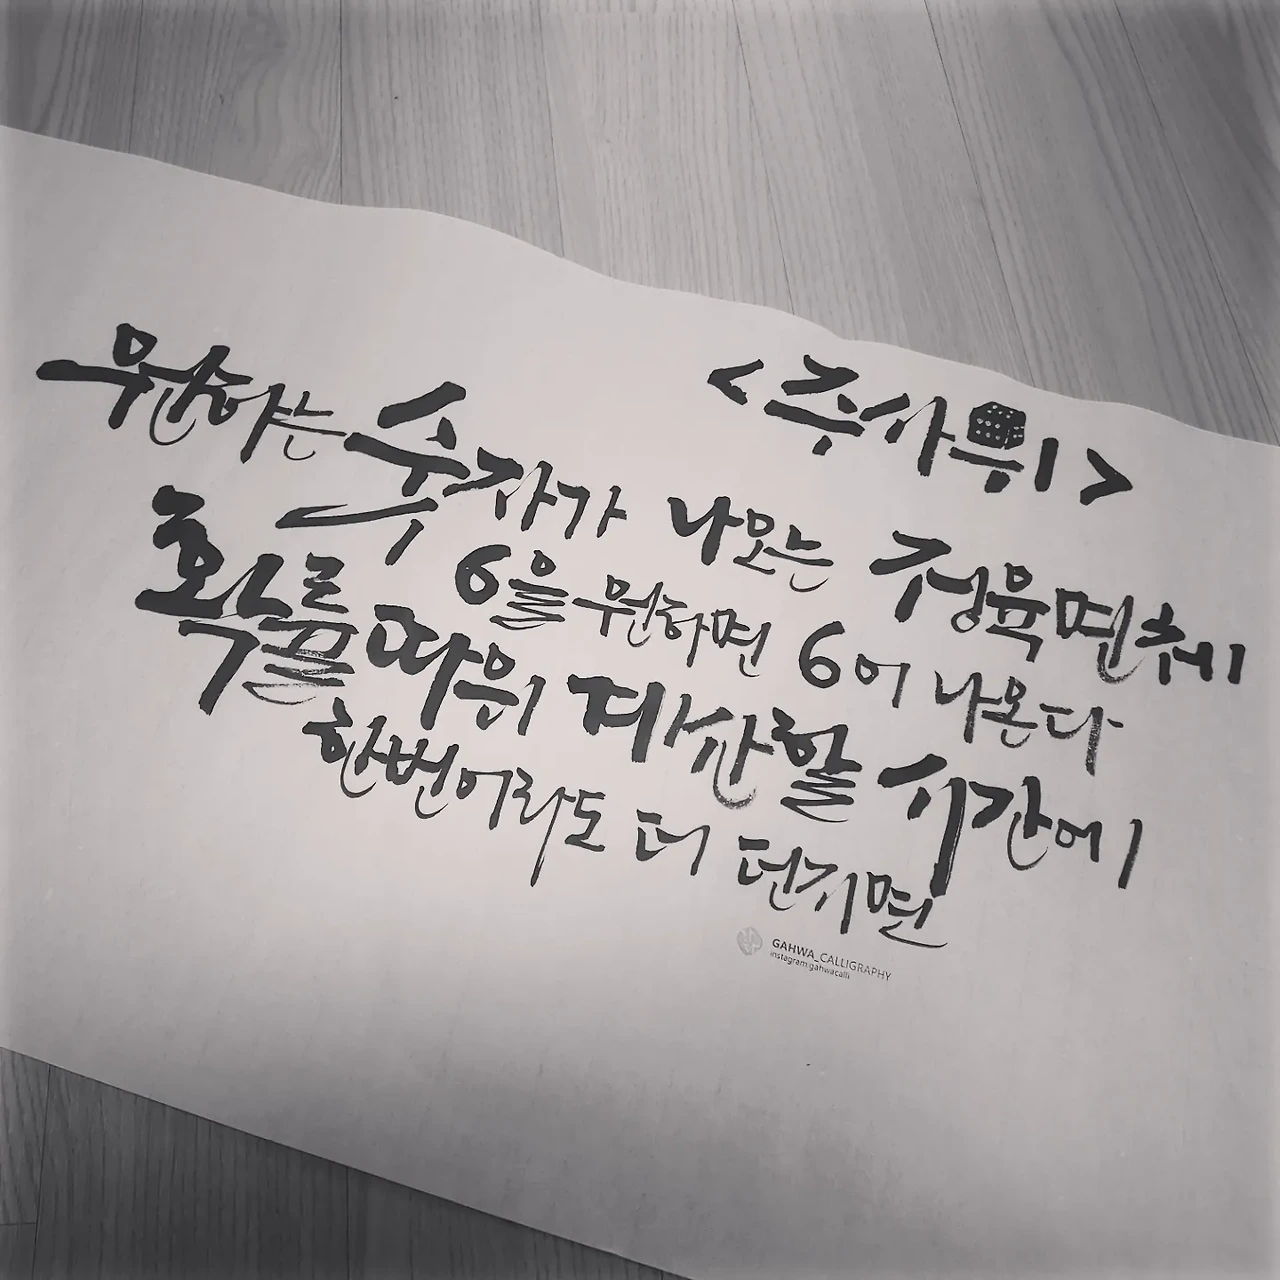 <주사위>
원하는 숫자가 나오는 정육면체
6을 원하면 6이 나온다
확률따위 계산할 시간에
한번이라도 더 던지면
GAHWA_CALLIGRAPHY
instagram:gahwacalli